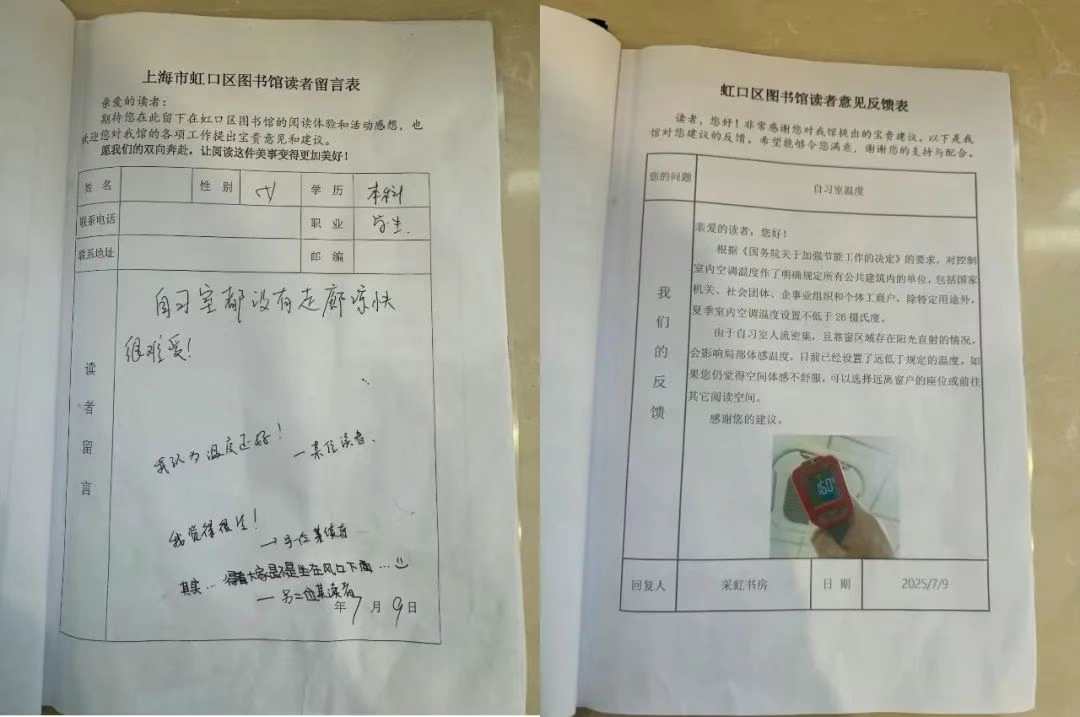 上海市虹口区图书馆读者留言表
亲爱的读者：
期待您在此留下在虹口区图书馆的阅读体验和活动感想，也
欢迎您对我馆的各项工作提出宝贵意见和建议。
愿我们的双向奔赴，让阅读这件美事变得更加美好！
姓 名 性 别 女 学 历 本科
联系电话 职 业 学生.
联系地址 邮 编
读者留言
自习室都没有走廊凉快
很难受！
我认为温度还好！
—某位读者.
我觉得很冷！
→另一位某读者
其实… 得看大家是不是坐在风口下面…
— 另二位某读者
年7月9日
虹口区图书馆读者意见反馈表
读者，您好！非常感谢您对我馆提出的宝贵建议。以下是我
馆对您建议的反馈。希望能够令您满意，谢谢您的支持与配合。
您的问题 自习室温度
我们的反馈
亲爱的读者：您好！
根据《国务院关于加强节能工作的决定》的要求，对控制
室内空调温度作了明确规定所有公共建筑内的单位，包括国家
机关、社会团体、企事业组织和个体工商户，除特定用途外，
夏季室内空调温度设置不低于 26 摄氏度。
由于自习室人流密集，且靠窗区域存在阳光直射的情况，
会影响局部体感温度，目前已经设置了远低于规定的温度。如
果您仍觉得空间体感不舒服，可以选择远离窗户的座位或前往
其它阅读空间。
感谢您的建议。
160
回复人 采虹书房 日 期 2025/7/9